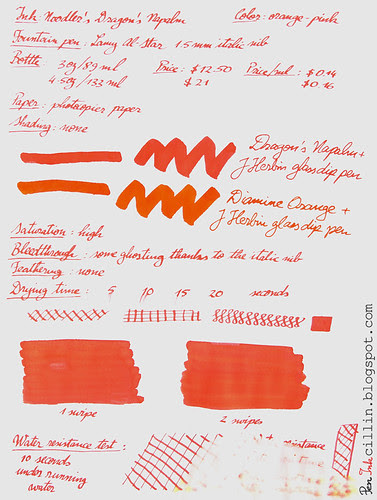 Ink: Noodler's Dragon's Napalm Color: orange-pink
Fountain pen: Lamy Al-Star 1.5mm italic nib
Bottle 3oz/89ml Price: $12.50 Price/ml: $0.14
4.5oz/133ml $21 $0.16
Paper: photocopier paper
Shading: none
Dragon's Napalm +
J Herbin glass dip pen
Diamine Orange +
J Herbin glass dip pen
Saturation: high
Bleedthrough: some ghosting thanks to the italic nib
Feathering: none
Drying time: 5 10 15 20 seconds
1 swipe
2 swipes
Water resistance test:
10 seconds
under running
water
Pen Ink cillin.blogspot.com